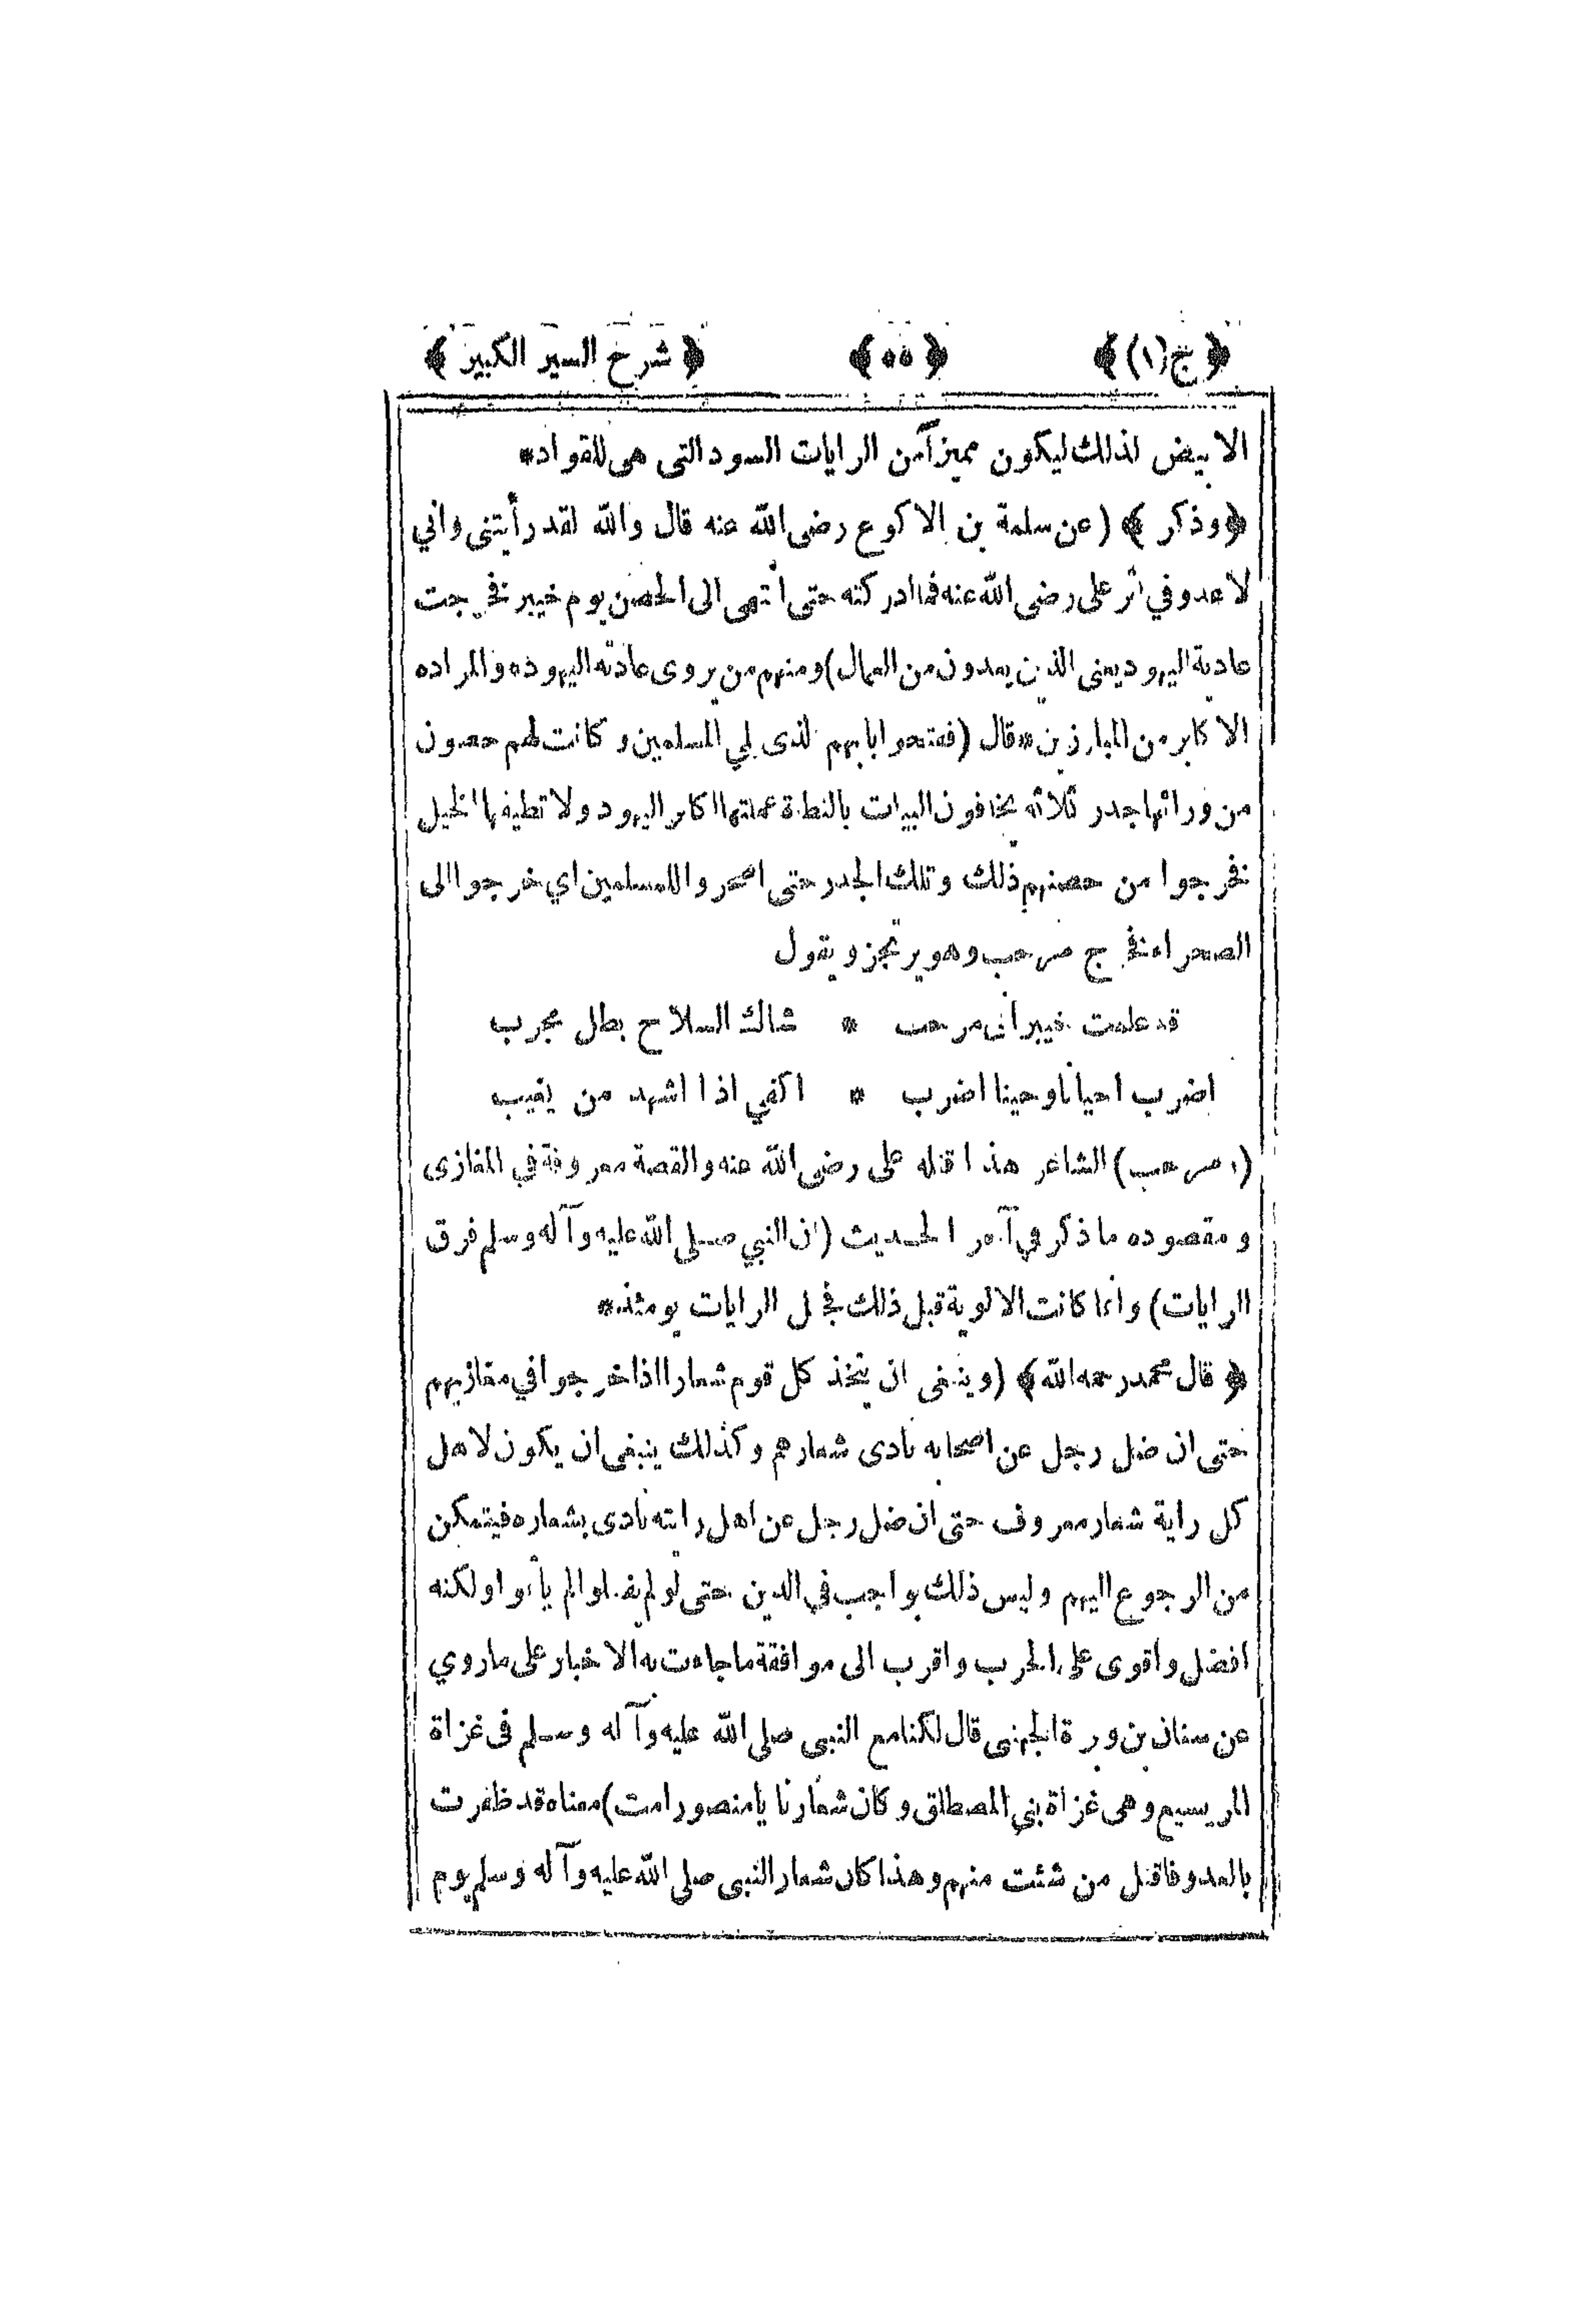 ﴿ج(١)﴾ ﴿٥٥﴾ ﴿شرح السير الكبير﴾
الابيض لذلك ليكون مميزاً من الرايات السود التى هى للقواد*
﴿وذكر﴾ (عن سلمة بن الاكوع رضى الله عنه قال والله لقد رأيتنى وانى
لاعدو في اثر على رضى الله عنه فما ادركته حتى انتهى الى الحصن يوم خيبر فخرجت
عادية اليهود يعنى الذين يعدون من العمال) ومنهم من يروى عادته اليهوده والمراده
الاكابر من المبارزين* قال (ففتحوا بابهم الذى يلي المسلمين وكانت لهم حصون
من ورائها جدر ثلاثه يخافون البيات بالنطاة عملتها اكابر اليهود ولا تطيقها الخيل
فخرجوا من حصنهم ذلك وتلك الجدر حتى اصحروا للمسلمين اي خرجوا الى
الصحراء فخرج مرحب وهو يرتجز ويقول
قد علمت خيبر أنى مرحب * شاك السلاح بطل مجرب
اضرب احيانا وحينا اضرب * اكفي اذا اشهد من يغيب
(مرحب) الشاعر هذا قتله على رضى الله عنه والقصة معروفة في المغازى
ومقصوده ما ذكر في آخر الحديث (ان النبي صلى الله عليه وآله وسلم فرق
الرايات) وانما كانت الالوية قبل ذلك فجعل الرايات يومئذ*
﴿قال محمد رحمه الله﴾ (وينبغى ان يتخذ كل قوم شعارا اذا خرجوا في مغازيهم
حتى ان ضل رجل عن اصحابه نادى شعارهم وكذلك ينبغى ان يكون لاهل
كل راية شعار معروف حتى ان ضل رجل عن اهل رايته نادى بشعاره فيتمكن
من الرجوع اليهم وليس ذلك بواجب في الدين حتى لو لم يفعلوا لم يأثموا ولكنه
افضل واقوى على الحرب واقرب الى موافقة ما جاءت به الاخبار على ما روي
عن سنان بن وبرة الجهنى قال لكنا مع النبى صلى الله عليه وآله وسلم فى غزاة
المريسيع وهى غزاة بني المصطلق وكان شعارنا يا منصور امت) معناه قد ظفرت
بالعدو فاقتل من شئت منهم وهذا كان شعار النبى صلى الله عليه وآله وسلم يوم